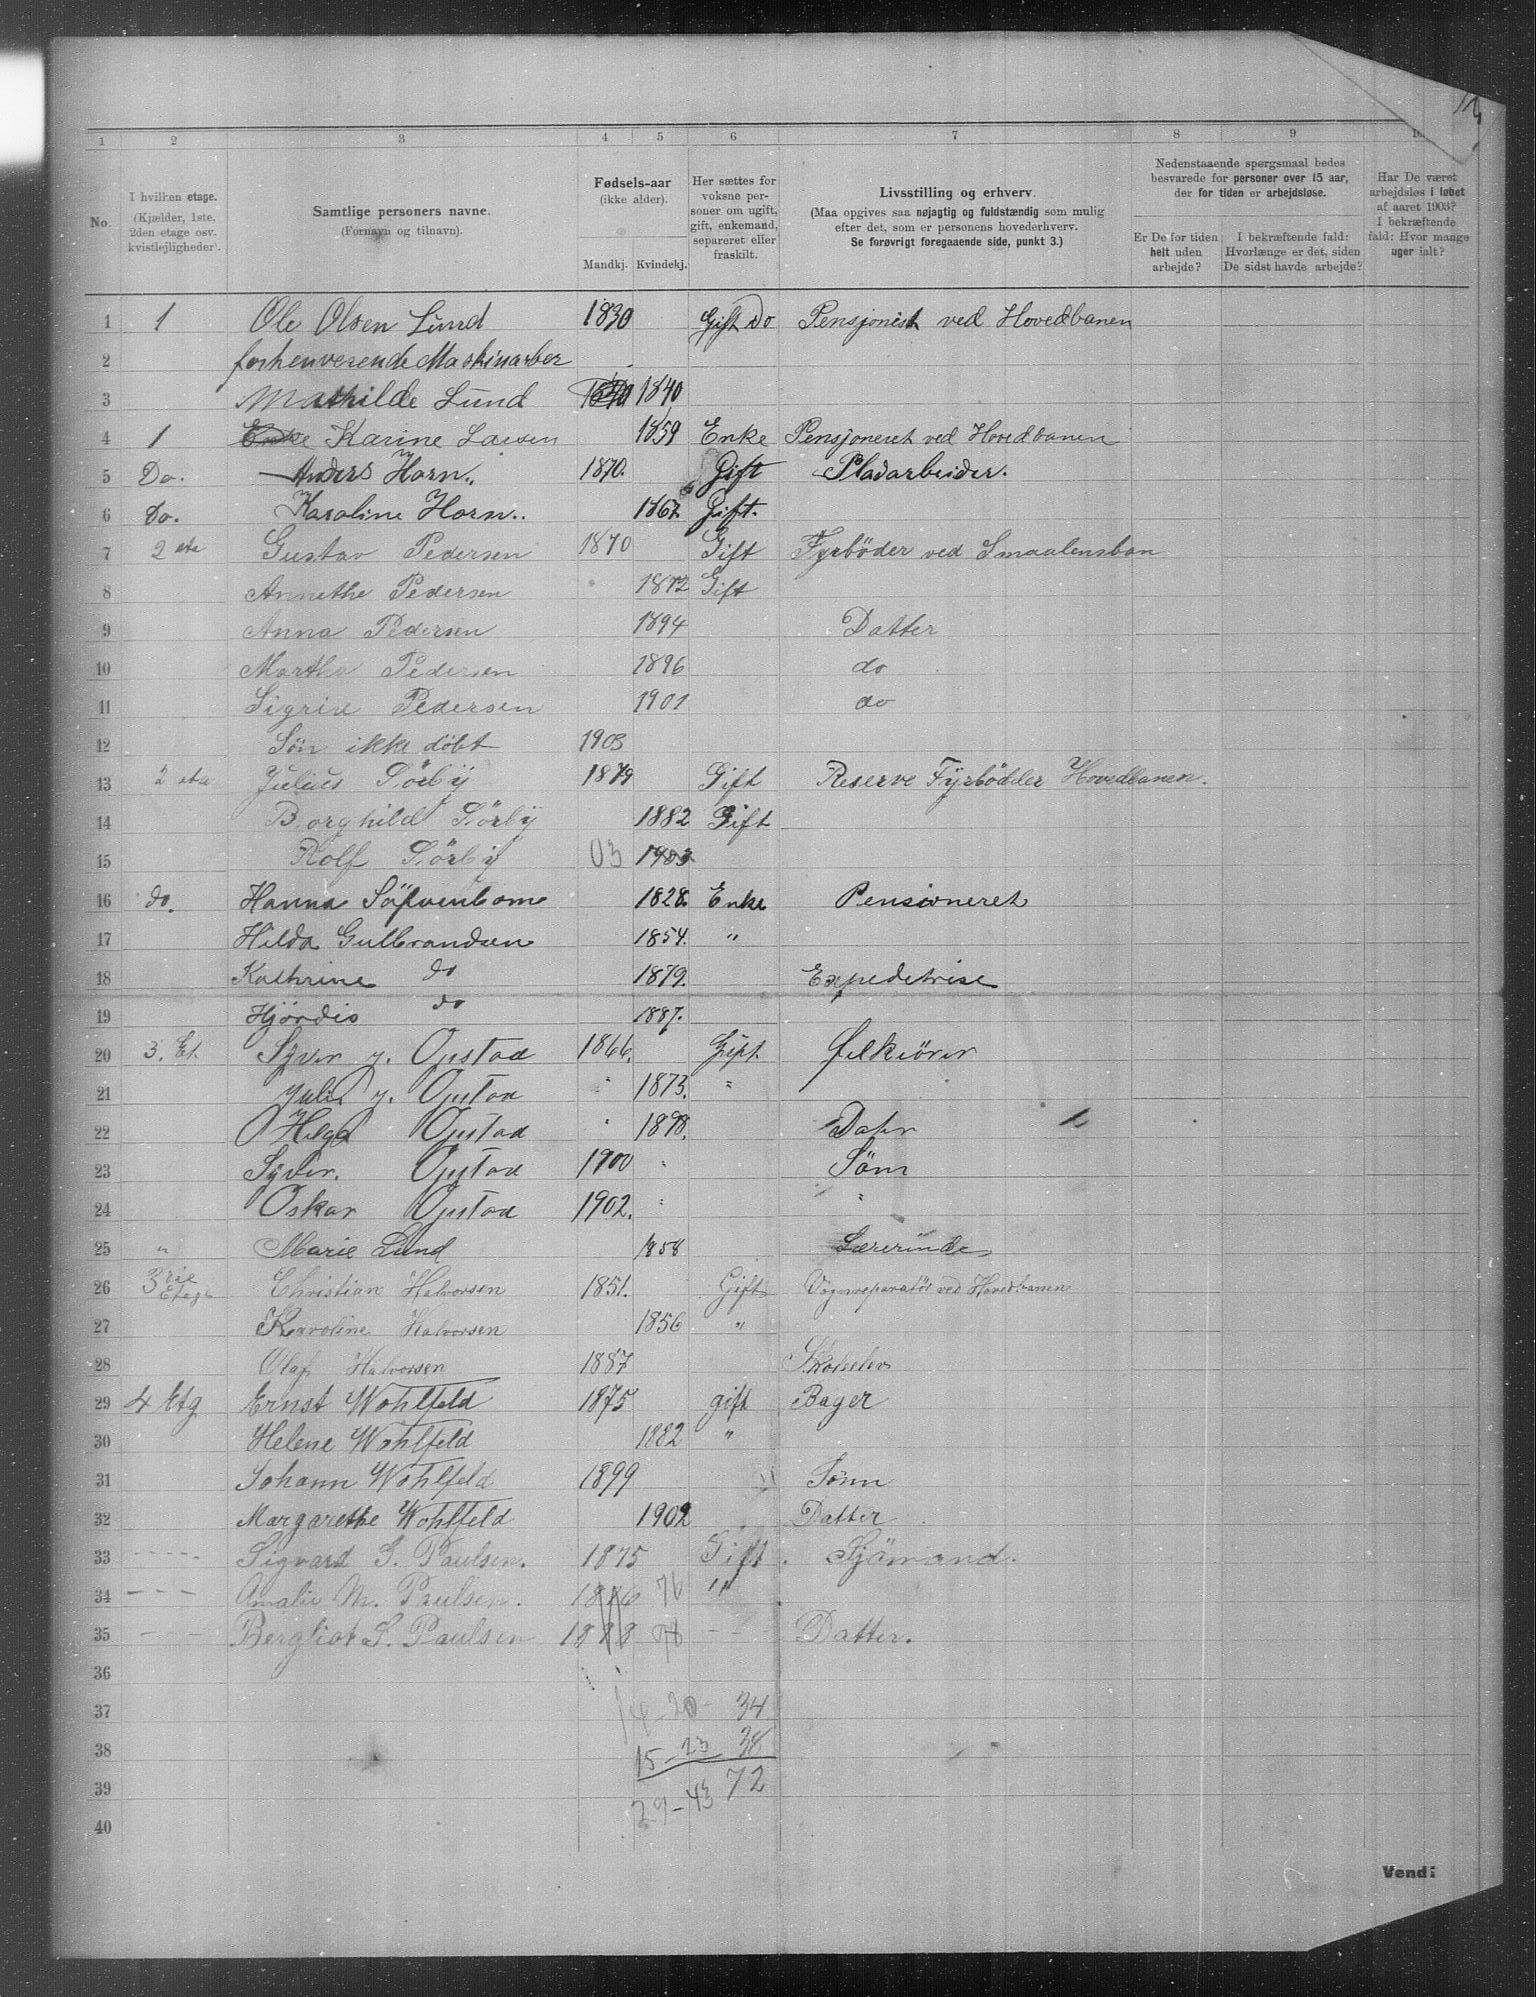 1 2 3 4 5 6 7 8 9
No.
I hvilken etage.
(Kjælder, 1ste,
2den etage osv.
kvistlejligheder).
Samtlige personers navne.
(Fornavn og tilnavn).
Fødsels-aar
(ikke alder).
Mandkj. Kvindekj.
Her sættes for
voksne per-
soner om ugift,
gift, enkemand,
separeret eller
fraskilt.
Livsstilling og erhverv.
(Maa opgives saa nøjagtig og fuldstændig som mulig
efter det, som er personens hovederhverv.
Se forøvrigt foregaaende side, punkt 3.)
Nedenstaaende spørgsmaal bedes
besvarede for personer over 15 aar,
der for tiden er arbejdsløse.
Er De for tiden
helt uden
arbejde?
I bekræftende fald:
Hvorlænge er det, siden
De sidst havde arbejde?
Har De været
arbejdsløs i løbet
af aaret 1903?
I bekræftende
fald: Hvor mange
uger ialt?
1 1 Ole Olsen Lund 1830 Gift Do Pensjonist ved Hovedbanen
2 forhenverende Maskinarber
3 Mathilde Lund 1840
4 1 Karine Larsen 1859 Enke Pensjoneret ved Hovedbanen
5 Do. Anders Horn. 1870. Gift Pladarbeider.
6 Do. Karoline Horn. 1867 Gift.
7 2 eta Gustav Pedersen 1870 Gift Fyrbøder ved Smaalensban
8 Annethe Pedersen 1872 Gift
9 Anna Pedersen 1894 Datter
10 Martha Pedersen 1896 do
11 Sigrid Pedersen 1901 do
12 Søn ikke døbt 1903
13 2 eta Julius Sørby 1879 Gift Reserve Fyrbødder Hovedbanen.
14 Borghild Sørby 1882 Gift
15 Rolf Sørby 03 1903
16 do. Hanna 1828 Enke Pensioneret
17 Hilda Gulbrandsen 1854. "
18 Kathrine do 1879. Expedetrise
19 Hjørdis do 1887.
20 3. Et. Syver J. Opstad 1866. Gift
21 Julie J. Opstad " 1873. "
22 Helga Opstad " 1898. Datr
23 Syver. Opstad 1900 " Sønn
24 Oskar Opstad 1902. " "
25 " Marie Lund 1858 Lærerinde
26 3die Etage Christian Halvorsen 1851. Gift Vognreparatør ved Hovedbanen
27 Karoline Halvorsen 1856 "
28 Olaf Halvorsen 1887 Skoleelev
29 4 Etg Ernst Wohlfeld 1875 gift Bager
30 Helene Wohlfeld 1882 "
31 Johann Wohlfeld 1899 Sønn
32 Margarethe Wohlfeld 1902 Datter
33 ---- Sigvard G. Paulsen. 1875 Gift. Sjömand.
34 --- Amalie M. Paulsen. 1876 76 "
35 --- Bergliot S. Paulsen 98 -- Datter.
36
37 14-20- 34
38 15-23 38
39 72
29-43
40
Vend!